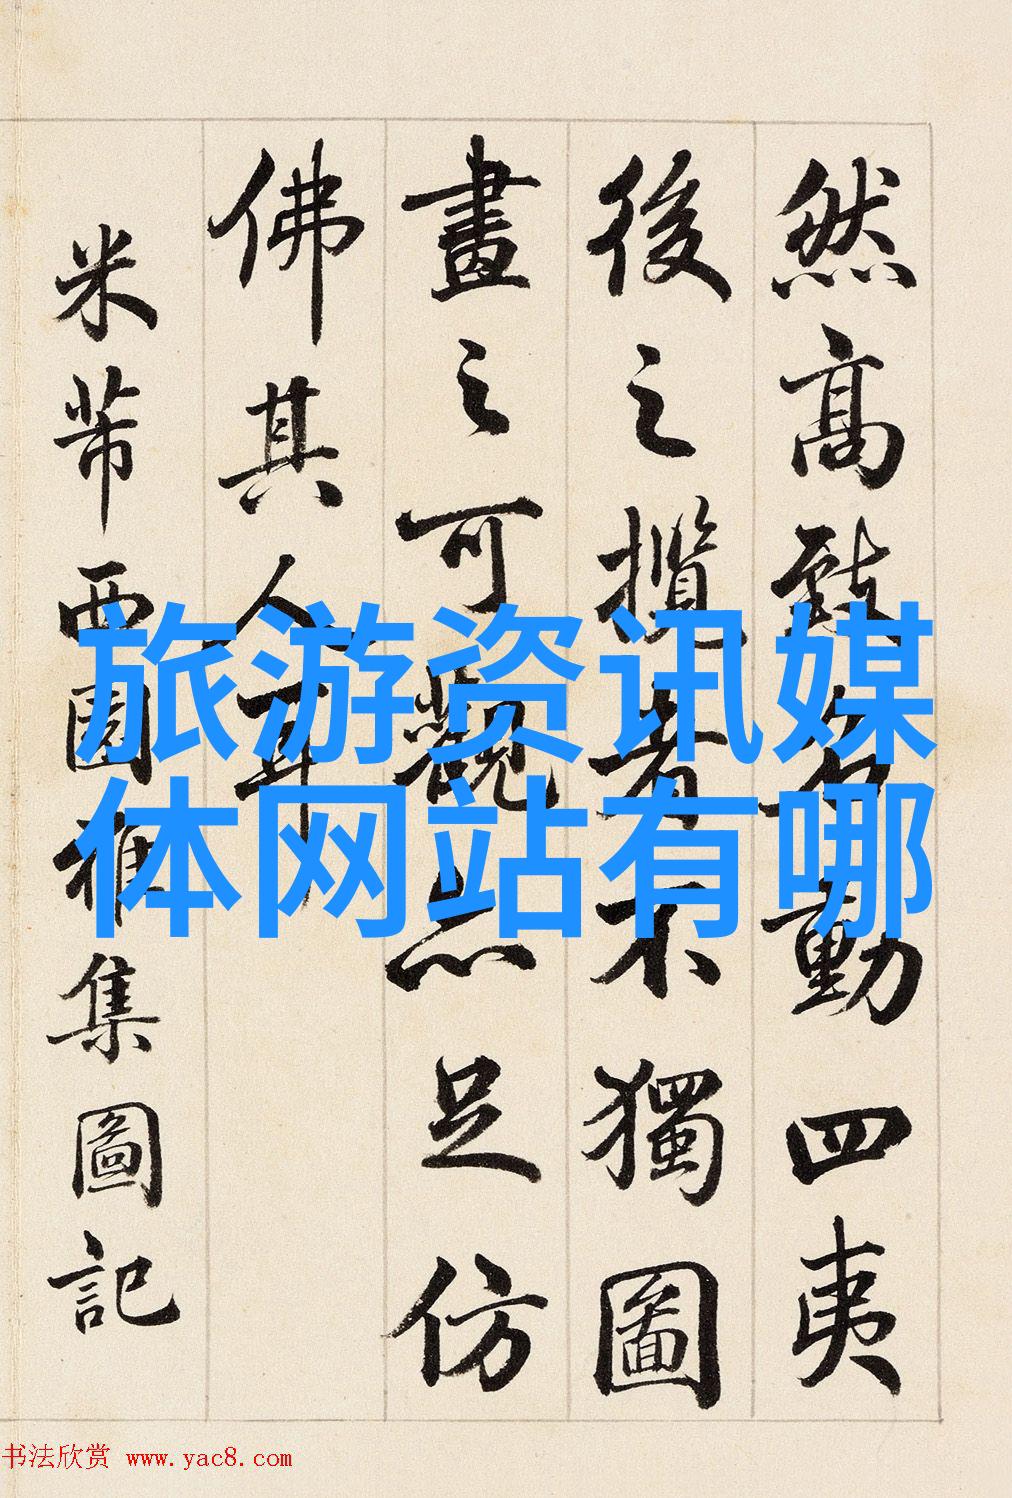 然高致名動四夷
後之攬者不獨圖
畫之可觀亦足仿
佛其人耳
米芾西園雅集圖記
旅游资讯媒
体网站有哪
书法欣赏 www.yac8.com